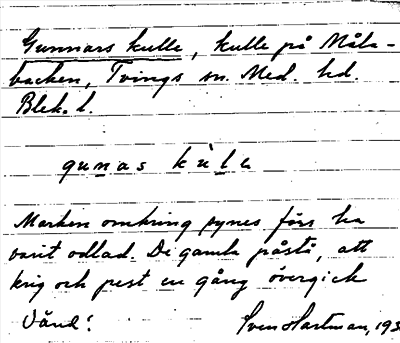 Gunnars kulle, kulle på Måla-
backen, Tvings sn. Med. hd.
Blek. l.
gunas kùlle
Marken omkring synes förr ha
varit odlad. De gamla påstå, att
krig och pest en gång övergick
Vänd! Sven Hartman, 193